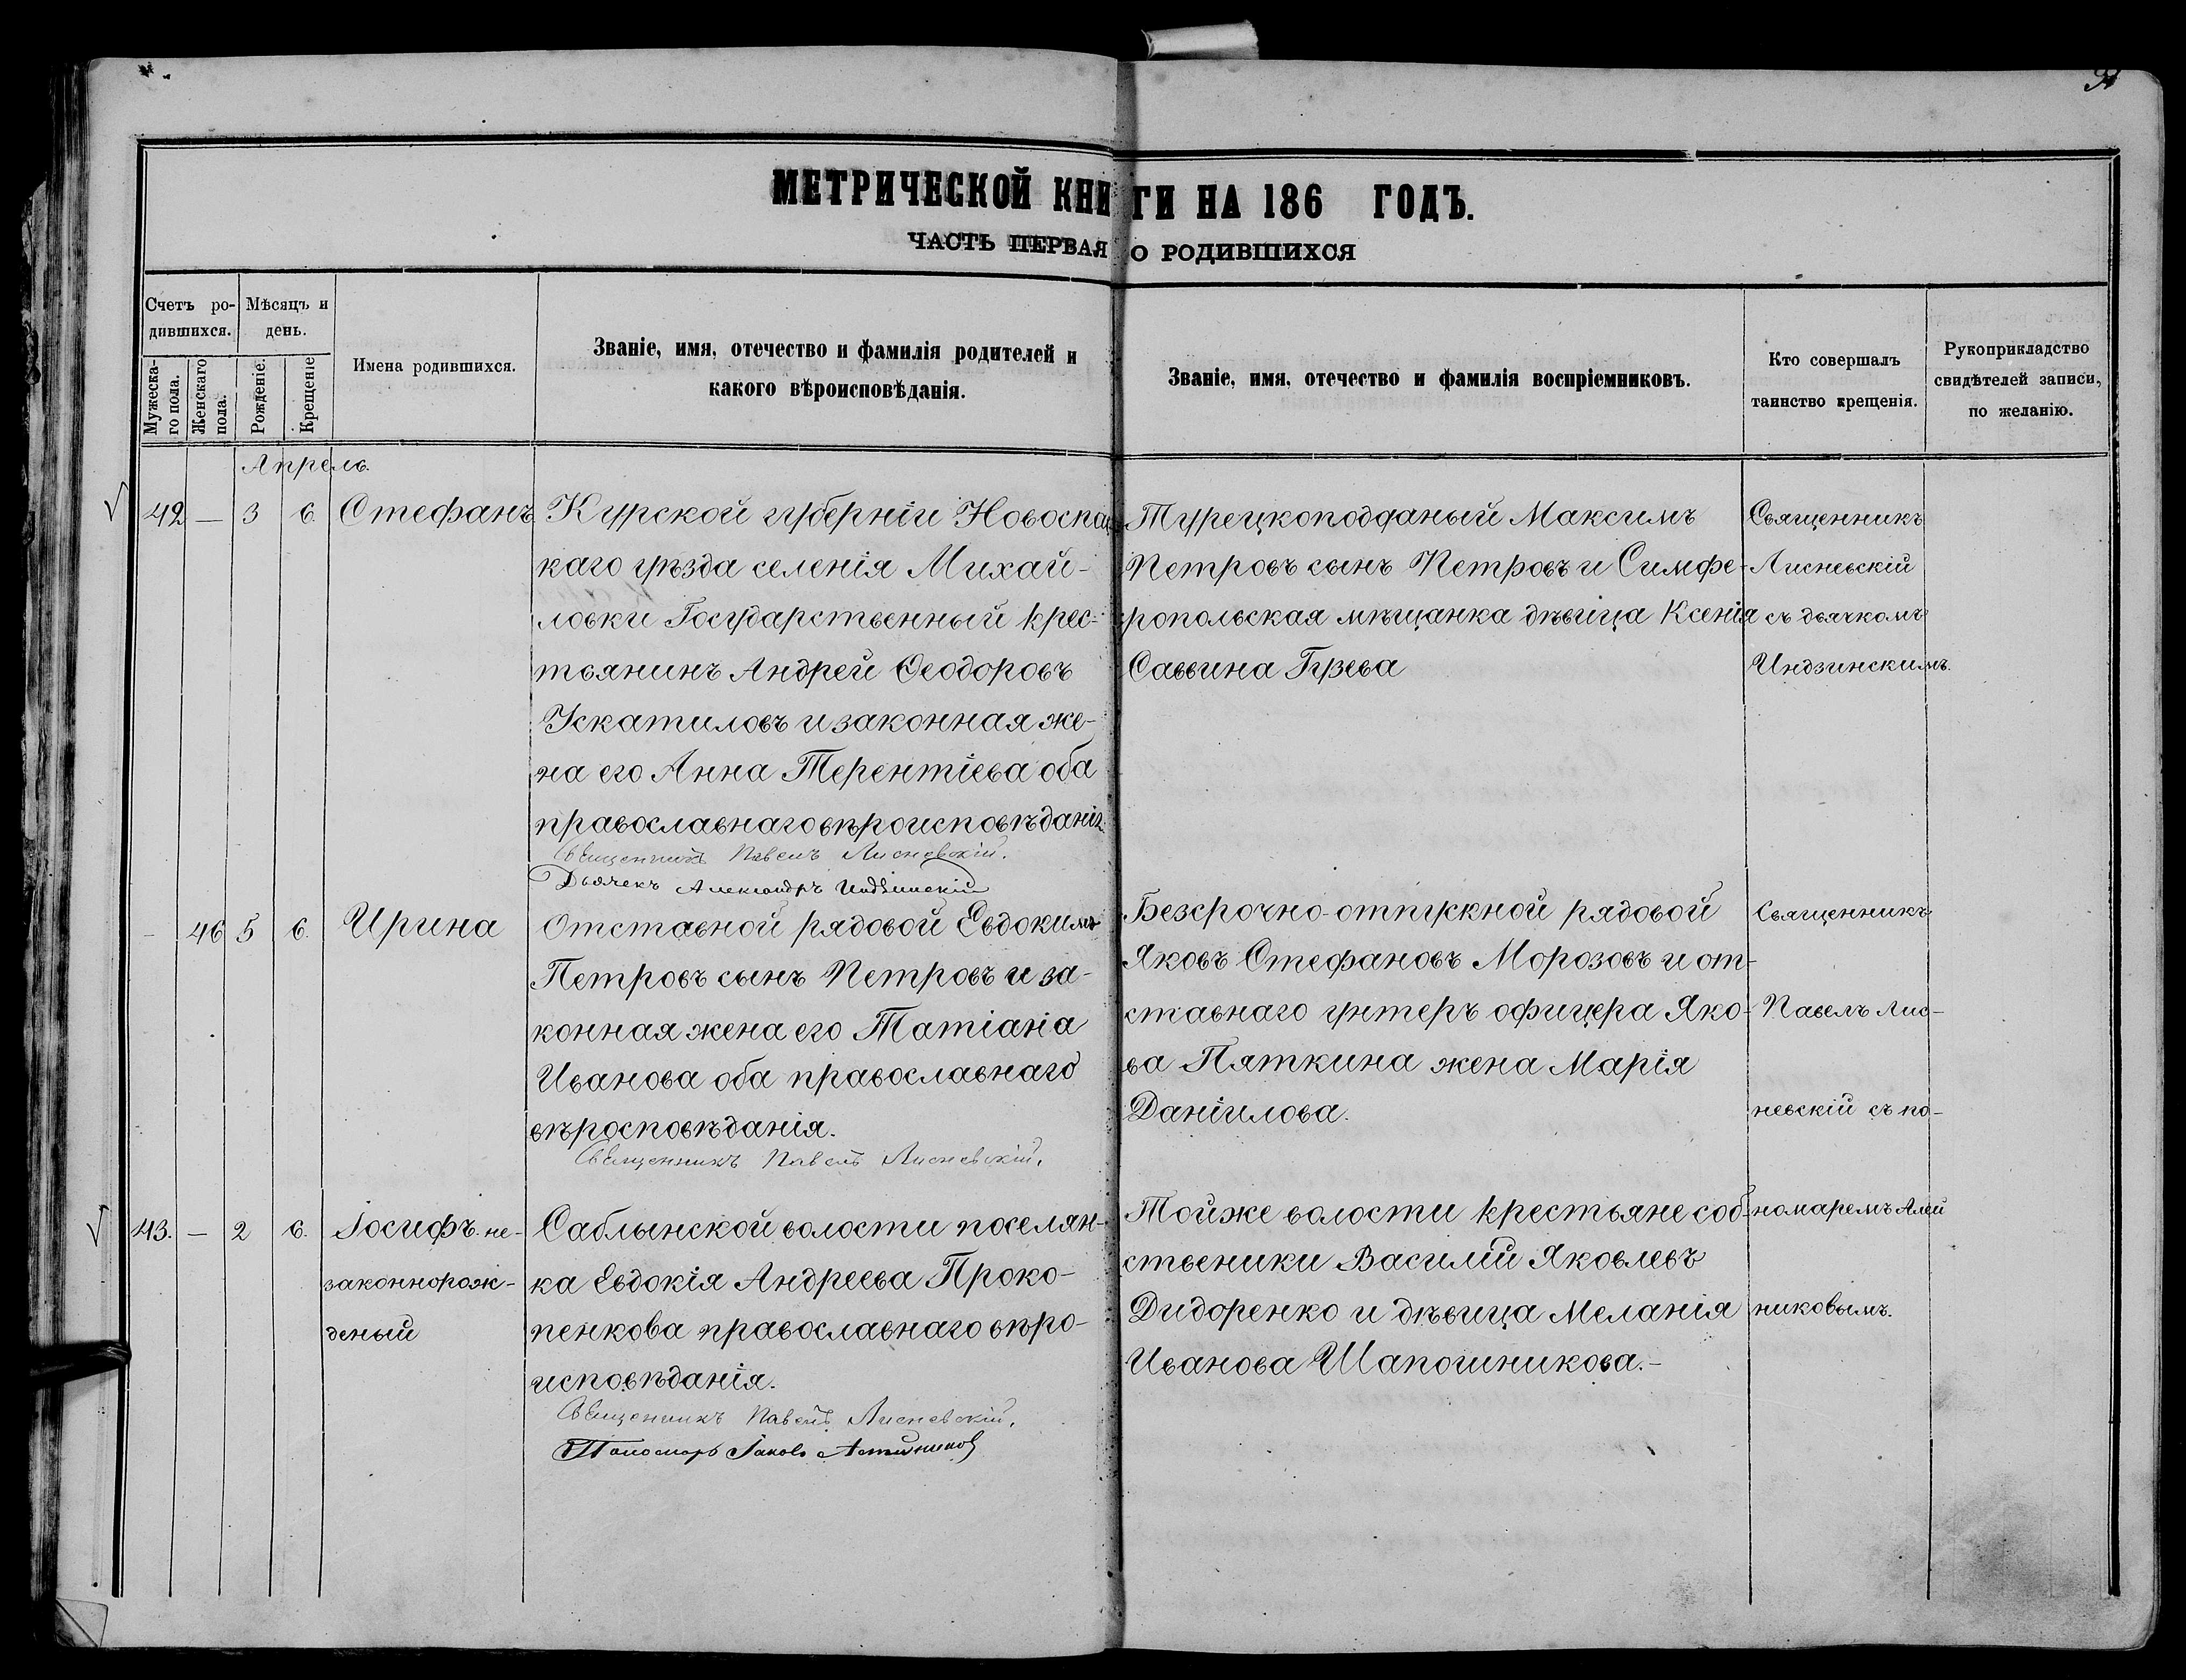 МЕТРИЧЕСКОЙ КНИГИ НА 186 ГОДЪ.
ЧАСТЬ ПЕРВАЯ О РОДИВШИХСЯ
Счетъ ро-
дившихся.
Мѣсяцъ и
день.
Мужеска-
го пола.
Женскаго
пола.
Рожденіе.
Крещеніе
Имена родившихся.
Званіе, имя, отечество и фамилія родителей и
какого вѣроисповѣданія.
Званіе, имя, отечество и фамилія воспріемниковъ.
Кто совершалъ
таинство крещенія.
Рукоприкладство
свидѣтелей записи,
по желанію.
Апрель.
42 — 3 6. Стефанъ
Курской губерніи
каго уѣзда селенія Михай-
ловки Государственный крес-
тьянинъ Андрей Ѳеодоровъ
Ускатиловъ и законная же-
на его Анна Терентіева оба
православнаго вѣроисповѣданія
Священникъ Павелъ Лисневскій.
Дьячекъ Александръ Индзинскій
Турецкоподданый Максимъ
Петровъ сынъ Петровъ и Симфе-
ропольская мѣщанка дѣвица Ксенія
Саввина Гузева
Священникъ
Лисневскій
съ дьячкомъ
Индзинскимъ.
— 46 5 6. Ирина
Отставной рядовой Евдокимъ
Петровъ сынъ Петровъ и за-
конная жена его Татіана
Иванова оба православнаго
вѣросповѣданія.
Священникъ Павелъ Лисневскій.
Безсрочно-отпускной рядовой
Яковъ Стефановъ Морозовъ и от-
ставнаго унтеръ офицера Яко-
ва Пяткина жена Марія
Даніилова.
Священникъ
Павелъ Лис-
невскій съ по-
43. — 2 6. Іосифъ. не-
законнорож-
деный
Саблынской волости поселян-
ка Евдокія Андреева Проко-
пенкова православнаго вѣро-
исповѣданія.
Священникъ Павелъ Лисневскій.
Пономарь Іаковъ
Тойже волости крестьяне соб-
ственики Василій Яковлевъ
Дидоренко и дѣвица Меланія
Иванова Шапошникова.—
номаремъ
никовымъ.